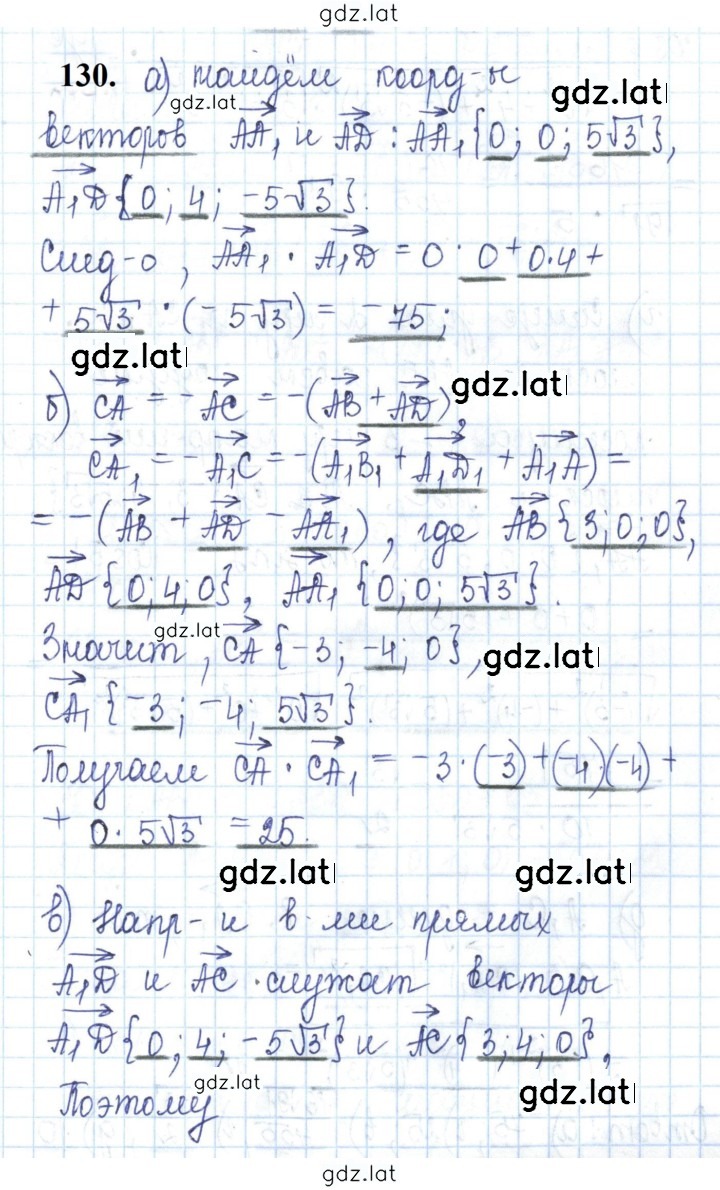 gdz.lat
130. а) найдём коорд-ы
gdz.lat
gdz.lat
векторов AA₁ и AD : AA₁{0; 0; 5√3},
A₁D{0; 4; -5√3}.
След-о, AA₁ · A₁D = 0 · 0 + 0·4 +
+ 5√3 · (- 5√3) = - 75;
gdz.lat
gdz.lat
б) CA = - AC = -(AB + AD),
CA₁ = - A₁C = -(A₁B₁ + A₁D₁ + A₁A) =
= -(AB + AD - AA₁), где AB{3;0;0},
AD{0;4;0}, AA₁{0;0; 5√3}.
gdz.lat
Значит, CA{-3; -4; 0},
gdz.lat
CA₁{-3; -4; 5√3}.
Получаем CA · CA₁ = -3·(-3)+(-4)(-4) +
+ 0· 5√3 = 25.
gdz.lat
gdz.lat
в) Напр-и в-ми прямых
A₁D и AC служат векторы
A₁D{0; 4; -5√3} и AC{3;4;0},
gdz.lat
gdz.lat
Поэтому
gdz.lat